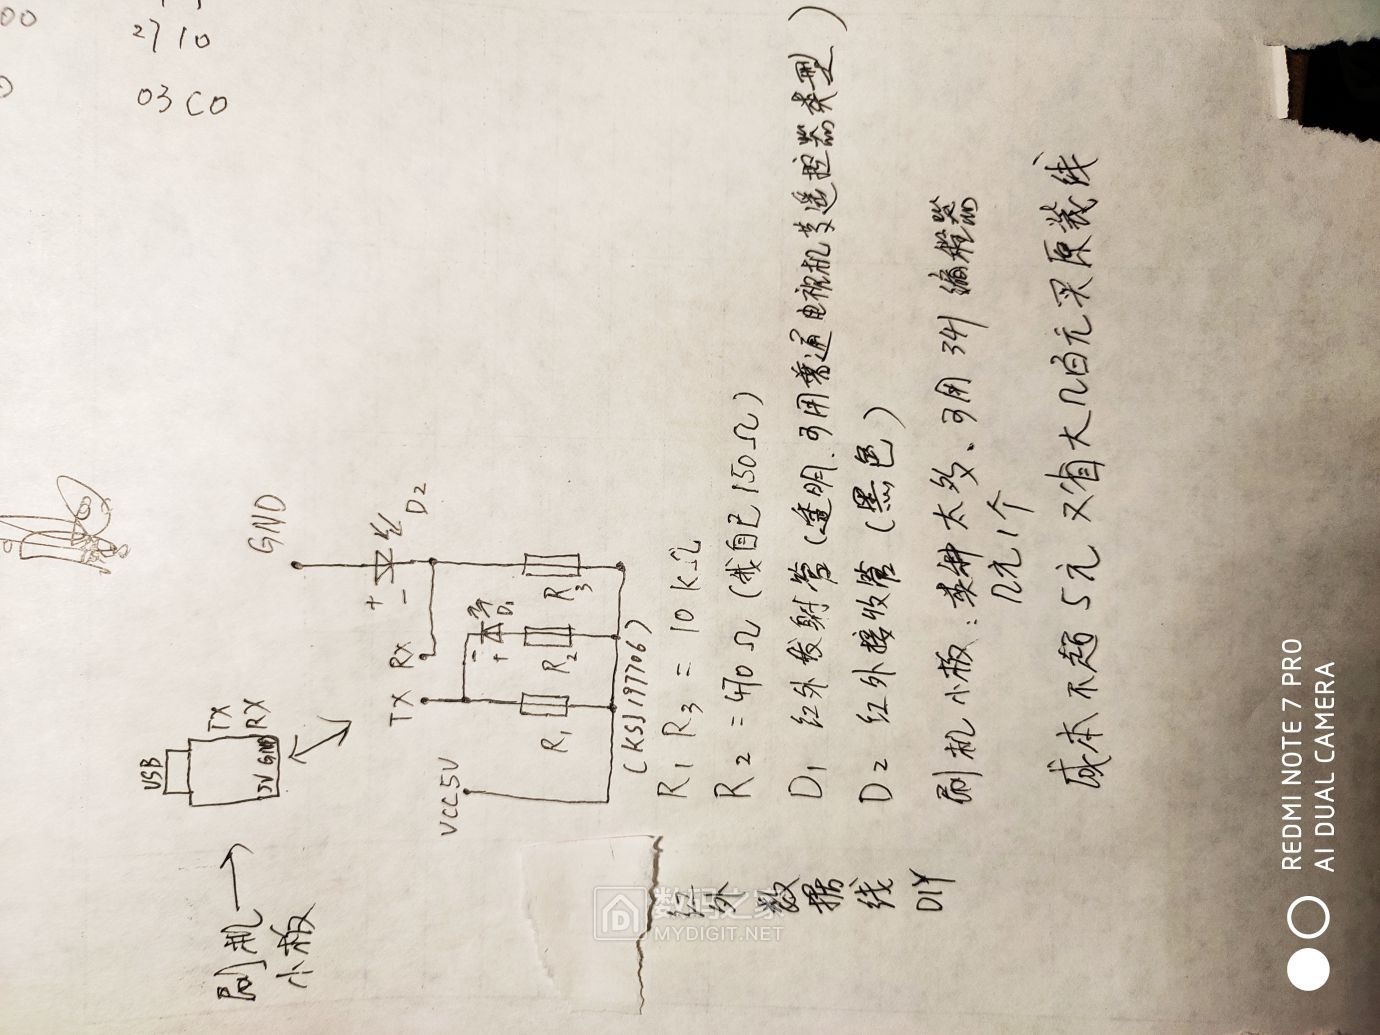 00
2710
03C0
刷机
小板
USB
TX
RX
5V GND
VCC5V
TX
RX
GND
D2
D1
R1
R2
R3
(KSJ197706)
R1 R3 = 10KΩ
R2 = 470Ω (我自己150Ω)
D1 红外发射管 (透明、可用普通电视机等遥控器类型)
D2 红外接收管 (黑色)
刷机小板：类种太多、可用341编程器
几元1个
成本不超5元 又省大几百元买原装线
红外数据线
DIY
数码之家
MYDIGIT.NET
REDMI NOTE 7 PRO
AI DUAL CAMERA